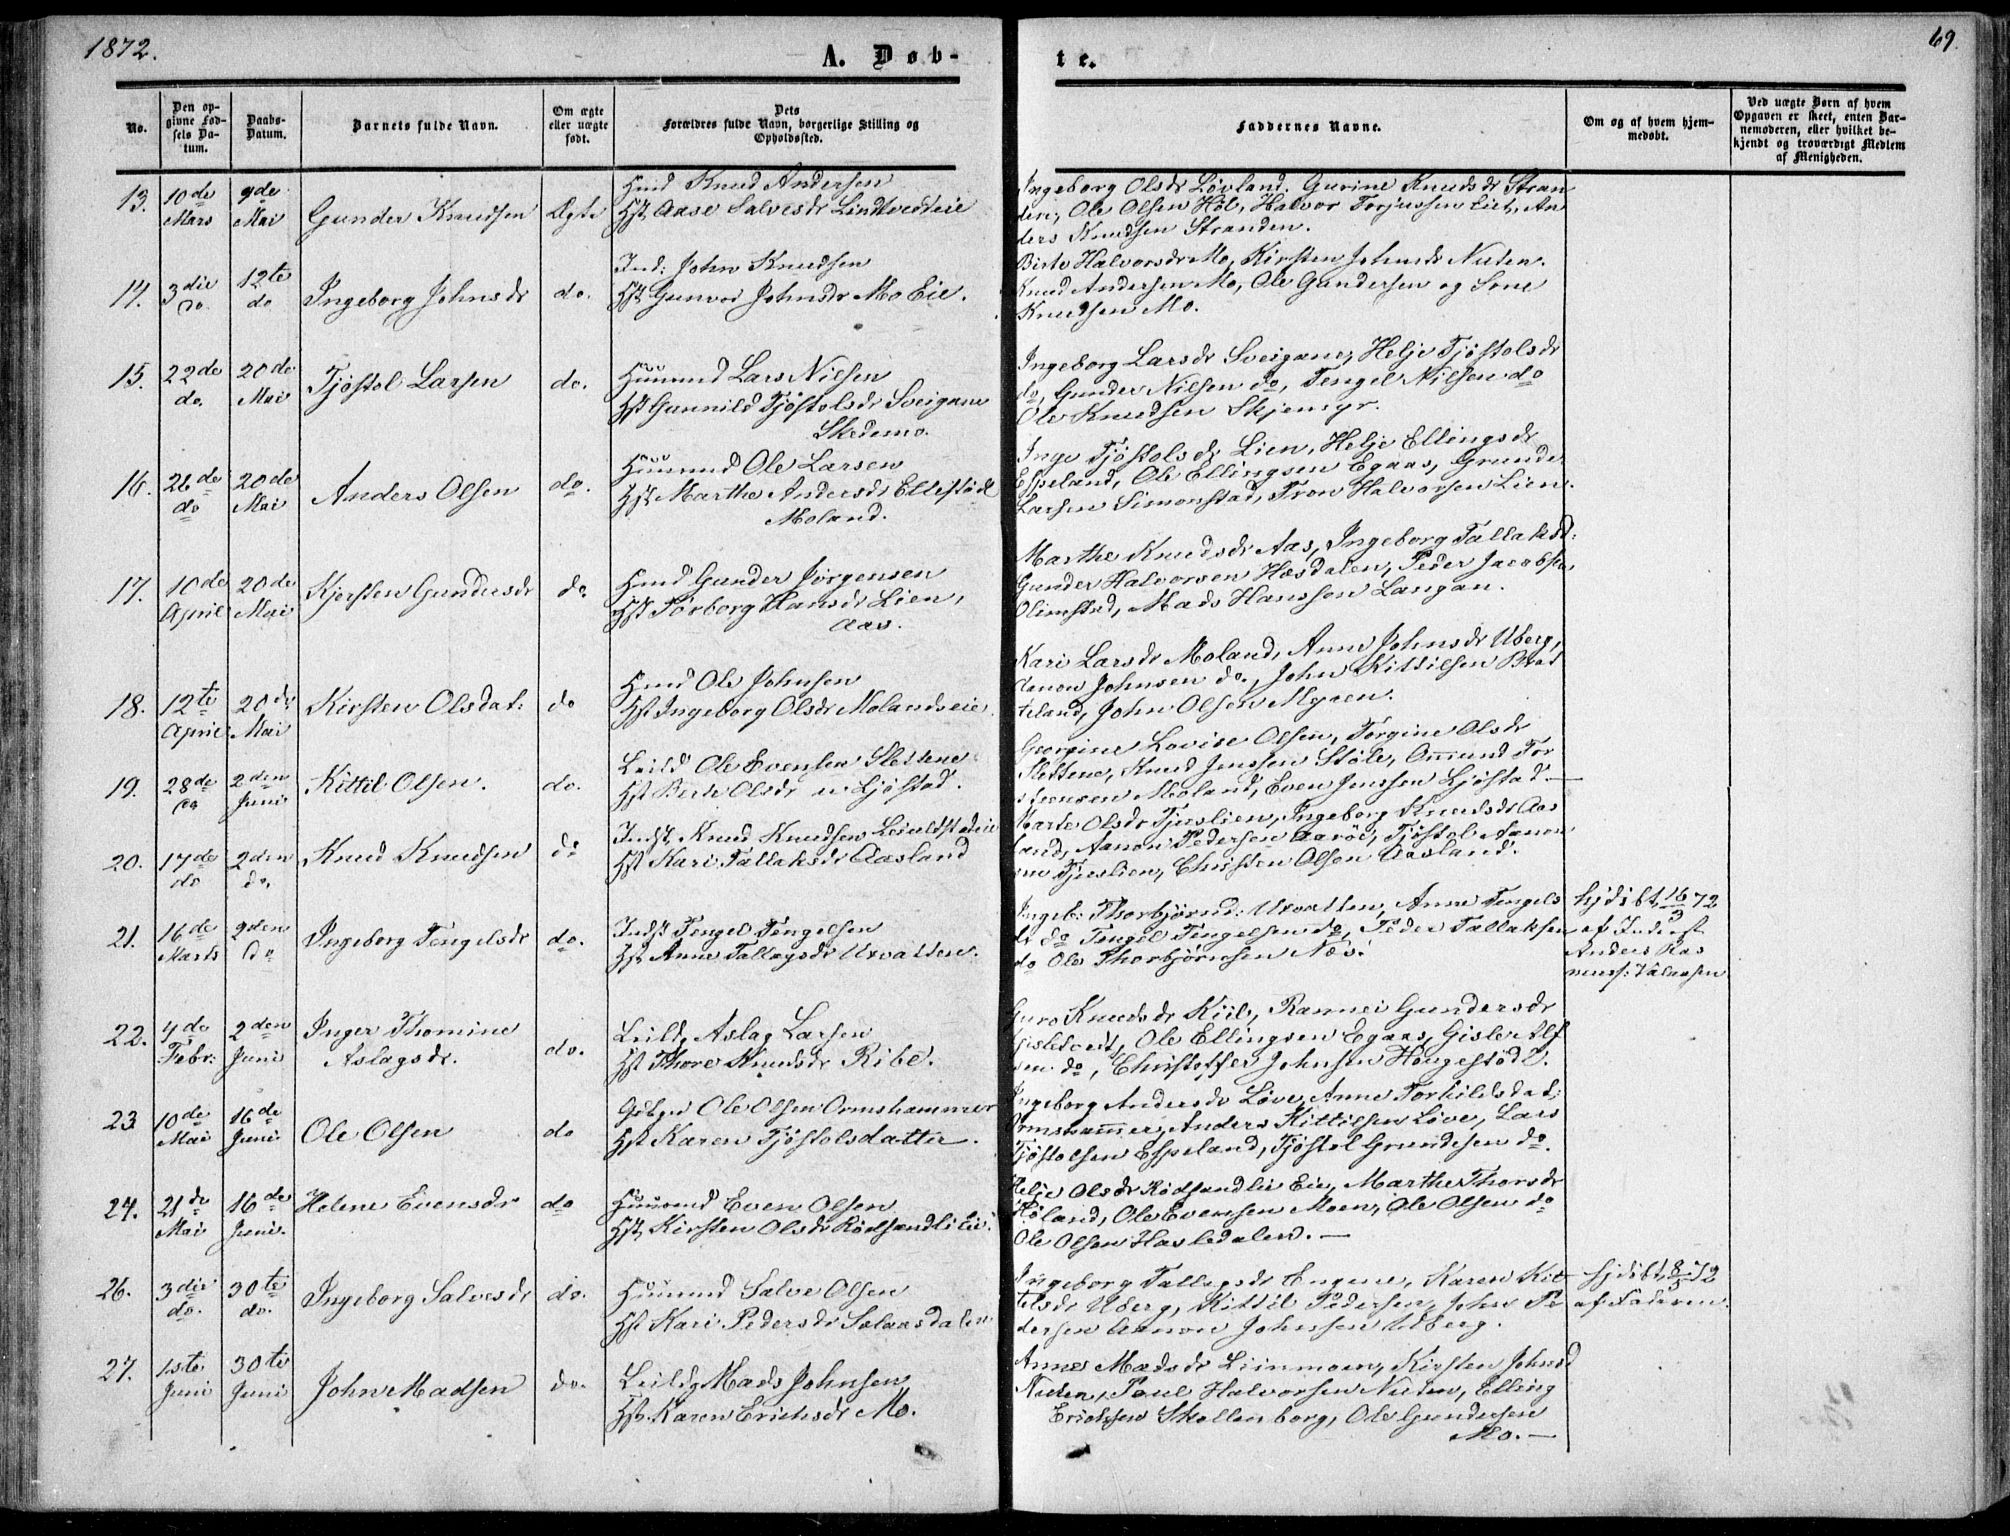 1872.
A. Døb-
te.
69.
No.
Den op-
givne Fød-
sels Da-
tum.
Daabs-
Datum.
Barnets fulde Navn.
Om ægte
eller uægte
født.
Dets
Forældres fulde Navn, borgerlige Stilling og
Opholdssted.
Faddernes Navne.
Om og af hvem hjem-
medøbt.
Ved uægte Børn af hvem
Opgaven er skeet, enten Bar-
nemoderen, eller hvilket be-
kjendt og troværdigt Medlem
af Menigheden.
13. 10de Mars 9de Mai Gunder Knudsen Ægte
Hmd Knud Andersen
Hst. Aase Salvesdr Lindtvedteie
Ingeborg Olsdr Løvland. Gurine Knudsdr Stran
den, Ole Olsen Høl, Halvor Torjussen Eiet, An
ders Knudsen Stranden.
14. 3die do. 12te do Ingeborg Johnsdr do.
Ind: John Knudsen
Hst Gunvor Johnsdr Mo Eie.
Birte Halvorsdr Mo, Kirsten Johnsdr Nuten.
Knud Andersen Mo, Ole Gundersen og Sone
Knudsen Mo.
15. 22de do. 20de Mai Tjøstol Larsen do.
Huusmd Lars Nilsen
Hst Gunnild Tjøstolsdr Sveigane
Skedemo.
Ingeborg Larsdr Sveigane, Helje Tjøstolsdr
do, Gunder Nilsen do, Tengel Nilsen do
Ole Knudsen Skjemyr.
16. 26de do 20de Mai Anders Olsen do.
Huusmd Ole Larsen
Hst Marthe Andersdr Ellestøl
Moland.
Inge Tjøstolsdr Lien, Helje Ellingsdr
Espeland, Ole Ellingsen Egaas, Grunde
Larsen Simonstad, Tron Halvorsen Lien.
17. 10de April 20de Mai Kjersten Gundersdr do
Hmd Gunder Jørgensen
Hst Torborg Hansdr Lien,
Aas.
Marthe Knudsdr Aas, Ingeborg Tallaksd:
Gunder Halvorsen Hæsdalen, Peder Jacobsen
Olimstad, Mads Hansen Langan.
18. 12te April 20de Mai Kirsten Olsdat: do
Hmd Ole Johnsen
Hst Ingeborg Olsdr Molandseie.
Kari Larsdr Moland, Anne Johnsdr Uberg,
Aanon Johnsen do., John Kittilsen Brat
teland, John Olsen Myren.
19. 28de 2den Juni Kittil Olsen. do.
Leild Ole Evensen Slettene
Hst Berte Olsdr Ljøstad.
Georgine Lovise Olsen, Torgine Olsdr
Slettene, Knud Jenssen Støle, Omund Tor
Moland, Even Jenssen Ljøstad.—
20. 17de do 2den do. Knud Knudsen do
Indst. Knud Knudsen
Hst Kari Tallaksdr Aasland
Marte Olsdr Tjuslien, Ingeborg Knudsdr Aas
land, Aanon Pedersen Aarøe, Tjøstol Aanon
sen Tjuslien, Christen Olsen Aasland.
21. 16de Marts 2den do Ingeborg Tengelsdr do.
Indst Tengel Tengelsen
Hst Anne Tallagsdr Uxvatten.
Ingeb: Thorbjørnd: Uxvatten, Anne Tengels
dr do Tengel Tengelsen do, Peder Tallaksen
do Ole Thorbjørnsen Næs.
hjdøbt 16/3 72
af Inderst
Anders Ras
muss:
22. 4de Febr: 2den Juni Inger Thomine
Aslagsdr. do.
Leild. Aslag Larsen
Hst Thore Knudsdr Ribe.
Guro Knudsdr Kiil, Rannei Gundersdr
Ole Ellingsen Egaas, Gisle Alf
sen do, Christoffer Johnsen Haugestøl.
23 10de Mai 16de Juni Ole Olsen do
Gbbgr Ole Olsen Ormshammer
Hst Karen Tjøstolsdatter.
Ingeborg Andersdr Løve, Anne Torkildsdat:
Ormshammer, Anders Kittilsen Løve, Lars
Tjøstolsen Espeland, Tjøstol Grundesen do.
24. 21de Mai 16de Juni. Helene Evensdr do
Huusmd Even Olsen
Hst, Kirsten Olsdr Rødsandli Eie.
Helje Olsdr Rødsandlie Eie, Marthe Thorsdr
Høland, Ole Evensen Moen, Ole Olsen do
Ole Olsen Hasledalen.—
26. 3die do. 30te do. Ingeborg Salvesdr do.
Huusmd Salve Olsen
Hst Kari Pedersdr Solaasdalen
Ingeborg Tallagsdr Engene, Karen Kit
telsdr Uberg, Kittil Pedersen, John Pe
dersen Aanon Johnsen Uberg.
hjdøbt 8/5 72
af Faderen.
27. 1ste Juni 30te Juni John Madsen do.
Leild. Mads Johnsen
Hst. Karen Erichsdr Mo.
Anne Madsdr Liinmoen, Kirsten Johnsd
Nuten, Poul Halvorsen Nuten, Elling
Erichsen Skollenborg, Ole Gundersen
Mo.—